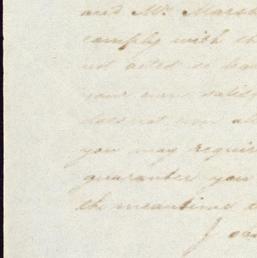 and Mr. Marsh
comply with th
not acted so ba
your own satis
does not now al
you may requir
guarantee you
the meantime
I